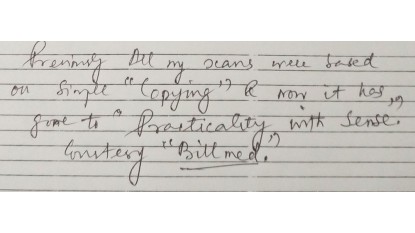 Previously All my scans were based
on Simple "Copying" & now it has
gone to "Practicality with Sense."
Courtesy "Bill med."